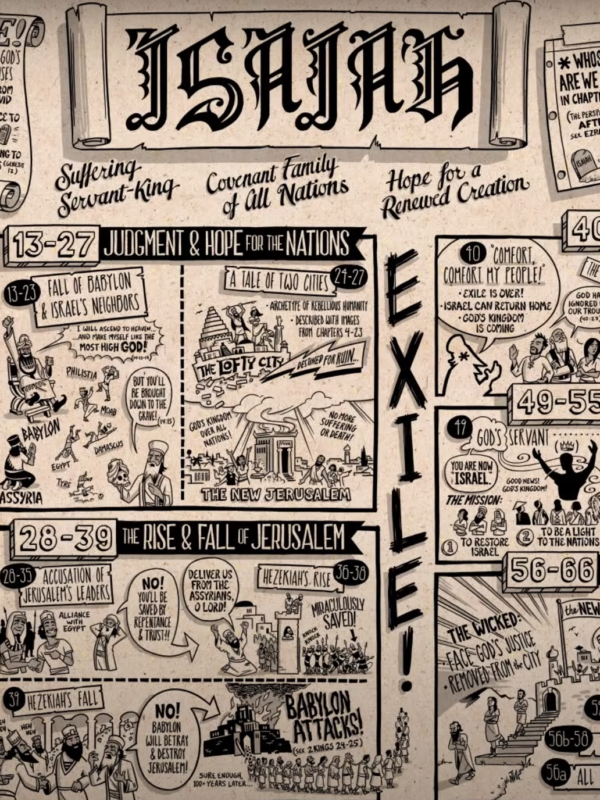 ISAIAH
Suffering
Servant-King
Covenant Family
of All Nations
Hope for a
Renewed Creation
E!
GOD'S
* WHOS
ARE WE
IN CHAPT
(THE PERSP
AFT
SEE EZR
ISAIAH
13-27 JUDGMENT & HOPE FOR THE NATIONS
13-23 FALL OF BABYLON
& ISRAEL'S NEIGHBORS
I WILL ASCEND TO HEAVEN...
AND MAKE MYSELF LIKE THE
MOST HIGH GOD!
PHILISTIA
MOAB
BABYLON
EGYPT
DAMASCUS
TYRE
ASSYRIA
BUT YOU'LL
BE BROUGHT
DOWN TO THE
GRAVE!
A TALE OF TWO CITIES 24-27
• ARCHETYPE OF REBELLIOUS HUMANITY
• DESCRIBED WITH IMAGES
FROM CHAPTERS 4-23
THE LOFTY CITY
DESTINED FOR RUIN...
GOD'S KINGDOM
OVER ALL
NATIONS!
NO MORE
SUFFERING
OR DEATH!
THE NEW JERUSALEM
28-39 THE RISE & FALL OF JERUSALEM
28-35 ACCUSATION OF
JERUSALEM'S LEADERS
ALLIANCE
WITH
EGYPT
NO!
YOU'LL BE
SAVED BY
REPENTANCE
& TRUST!!
DELIVER US
FROM THE
ASSYRIANS,
O LORD!
HEZEKIAH'S RISE 36-38
MIRACULOUSLY
SAVED!
39 HEZEKIAH'S FALL
NO!
BABYLON
WILL BETRAY
& DESTROY
JERUSALEM!
BABYLON
ATTACKS!
(SEE 2 KINGS 24-25)
SURE ENOUGH,
100+ YEARS LATER...
EXILE!
40
40 "COMFORT,
COMFORT MY PEOPLE!"
• EXILE IS OVER!
• ISRAEL CAN RETURN HOME
• GOD'S KINGDOM
IS COMING
GOD HA
IGNORED
OUR TROU
49-55
49 GOD'S SERVANT
YOU ARE NOW
"ISRAEL."
GOOD NEWS!
GOD'S KINGDOM!
THE MISSION:
1 TO RESTORE
ISRAEL
2 TO BE A LIGHT
TO THE NATIONS
56-66
THE WICKED:
• FACE GOD'S JUSTICE
• REMOVED FROM the CITY
the NEW
56b-58
56a ALL